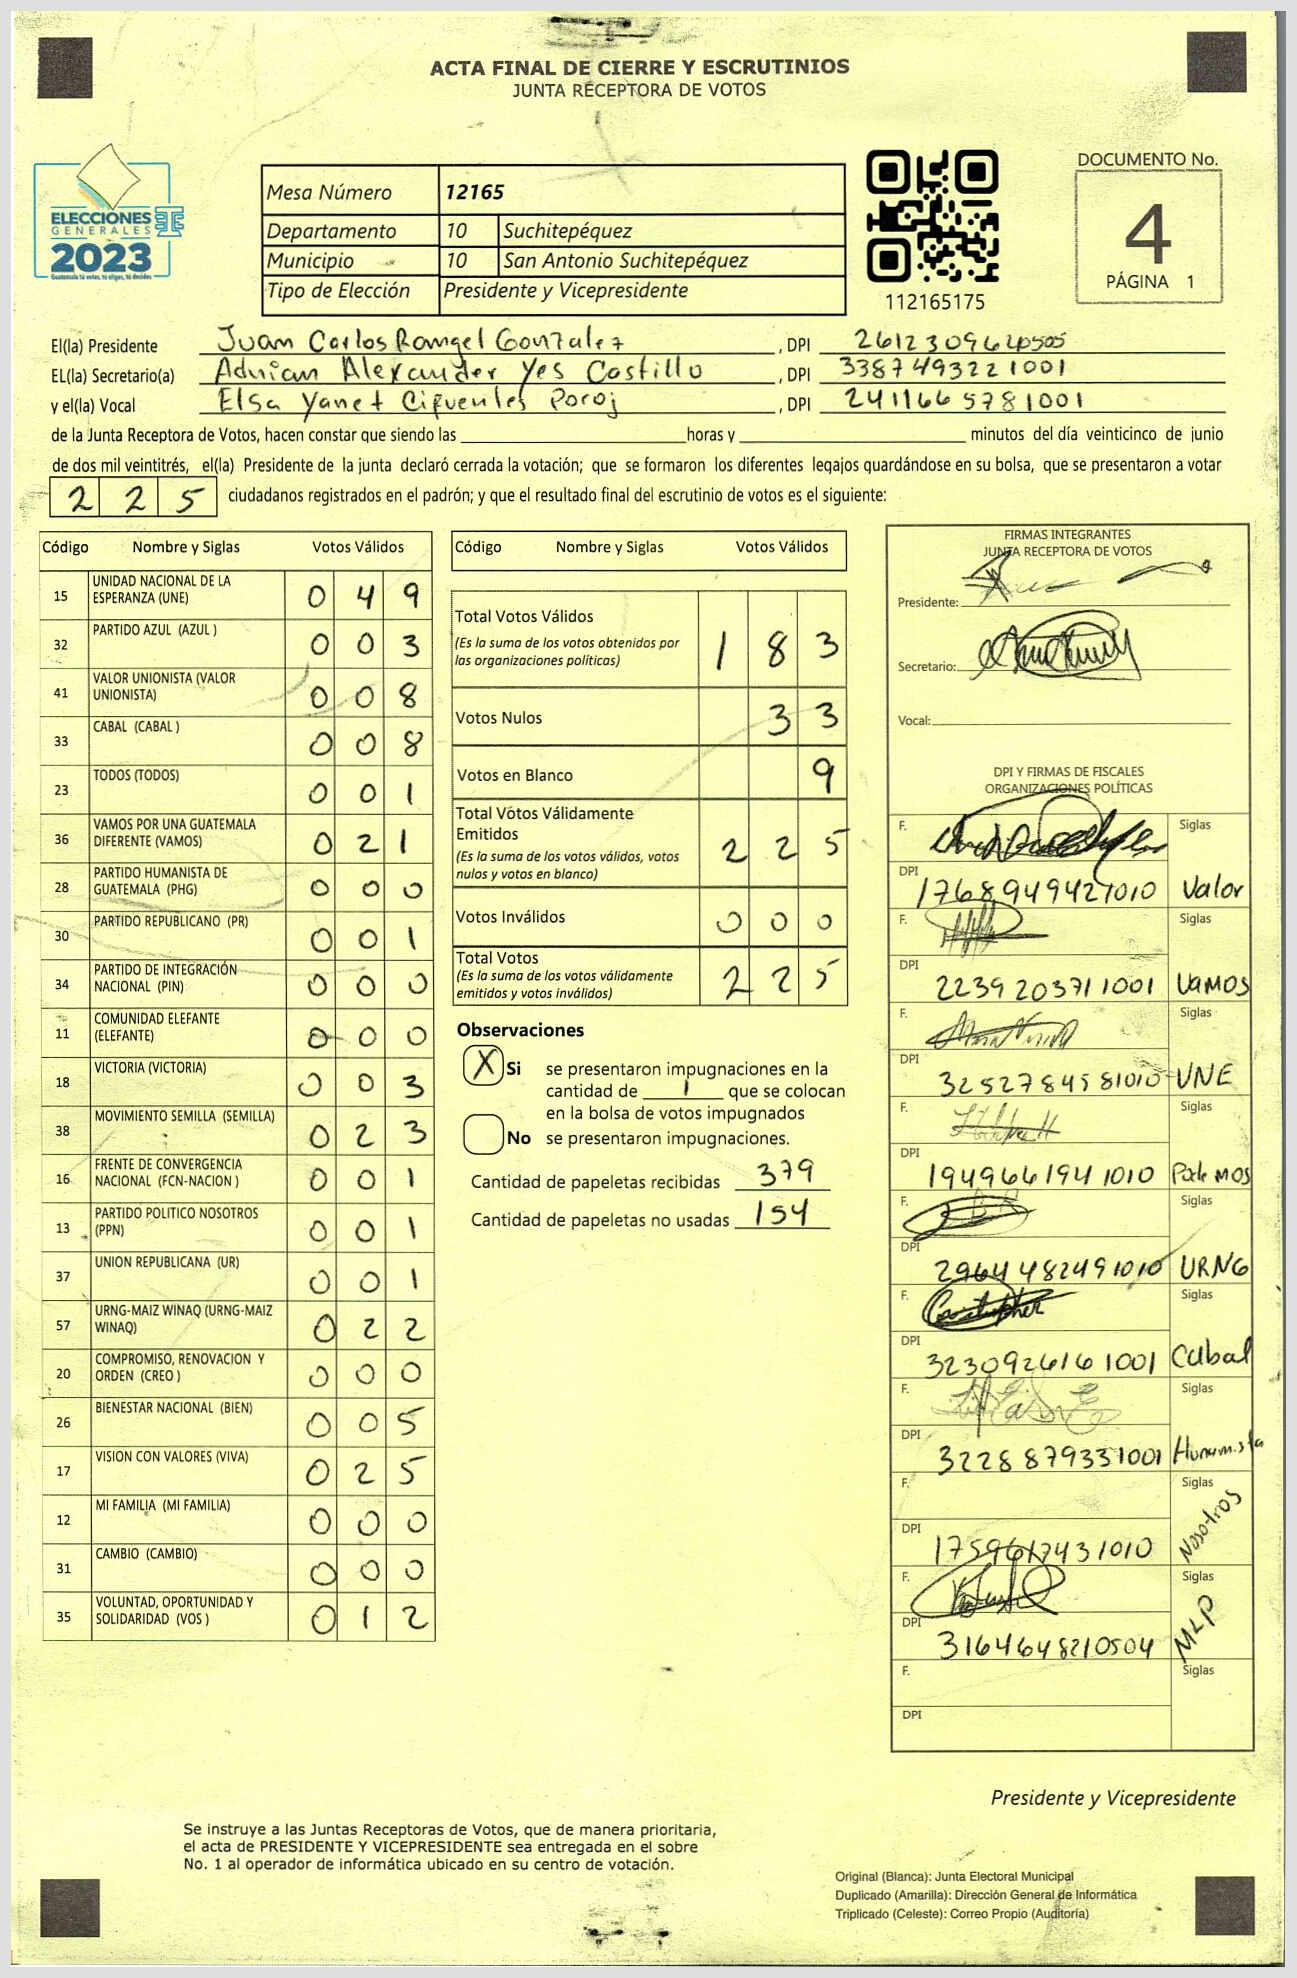 ACTA FINAL DE CIERRE Y ESCRUTINIOS
JUNTA RECEPTORA DE VOTOS
ELECCIONES
GENERALES
2023
Guatemala tú votas, tú eliges, tú decides
Mesa Número 12165
Departamento 10 Suchitepéquez
Municipio 10 San Antonio Suchitepéquez
Tipo de Elección Presidente y Vicepresidente
112165175
DOCUMENTO No.
4
PÁGINA 1
El(la) Presidente Juan Carlos Rangel Gonzalez , DPI 2612309620505
EL(la) Secretario(a) Adrian Alexander Yes Castillo , DPI 3387493221001
y el(la) Vocal Elsa Yanet Cifuentes Poroj , DPI 2411665781001
de la Junta Receptora de Votos, hacen constar que siendo las horas y minutos del día veinticinco de junio
de dos mil veintitrés, el(la) Presidente de la junta declaró cerrada la votación; que se formaron los diferentes legajos guardándose en su bolsa, que se presentaron a votar
225 ciudadanos registrados en el padrón; y que el resultado final del escrutinio de votos es el siguiente:
Código Nombre y Siglas Votos Válidos
15 UNIDAD NACIONAL DE LA ESPERANZA (UNE) 0 4 9
32 PARTIDO AZUL (AZUL ) 0 0 3
41 VALOR UNIONISTA (VALOR UNIONISTA) 0 0 8
33 CABAL (CABAL ) 0 0 8
23 TODOS (TODOS) 0 0 1
36 VAMOS POR UNA GUATEMALA DIFERENTE (VAMOS) 0 2 1
28 PARTIDO HUMANISTA DE GUATEMALA (PHG) 0 0 0
30 PARTIDO REPUBLICANO (PR) 0 0 1
34 PARTIDO DE INTEGRACIÓN NACIONAL (PIN) 0 0 0
11 COMUNIDAD ELEFANTE (ELEFANTE) 0 0 0
18 VICTORIA (VICTORIA) 0 0 3
38 MOVIMIENTO SEMILLA (SEMILLA) 0 2 3
16 FRENTE DE CONVERGENCIA NACIONAL (FCN-NACION ) 0 0 1
13 PARTIDO POLITICO NOSOTROS (PPN) 0 0 1
37 UNION REPUBLICANA (UR) 0 0 1
57 URNG-MAIZ WINAQ (URNG-MAIZ WINAQ) 0 2 2
20 COMPROMISO, RENOVACION Y ORDEN (CREO ) 0 0 0
26 BIENESTAR NACIONAL (BIEN) 0 0 5
17 VISION CON VALORES (VIVA) 0 2 5
12 MI FAMILIA (MI FAMILIA) 0 0 0
31 CAMBIO (CAMBIO) 0 0 0
35 VOLUNTAD, OPORTUNIDAD Y SOLIDARIDAD (VOS ) 0 1 2
Código Nombre y Siglas Votos Válidos
Total Votos Válidos 1 8 3
(Es la suma de los votos obtenidos por
las organizaciones políticas)
Votos Nulos 3 3
Votos en Blanco 9
Total Votos Válidamente
Emitidos 2 2 5
(Es la suma de los votos válidos, votos
nulos y votos en blanco)
Votos Inválidos 0 0 0
Total Votos 2 2 5
(Es la suma de los votos válidamente
emitidos y votos inválidos)
Observaciones
X Si se presentaron impugnaciones en la
cantidad de 1 que se colocan
en la bolsa de votos impugnados
No se presentaron impugnaciones.
Cantidad de papeletas recibidas 379
Cantidad de papeletas no usadas 154
FIRMAS INTEGRANTES
JUNTA RECEPTORA DE VOTOS
Presidente:
Secretario:
Vocal:
DPI Y FIRMAS DE FISCALES
ORGANIZACIONES POLÍTICAS
F. Siglas
DPI 1768949421010 Valor
F. Siglas
DPI 2239203711001 VAMOS
F. Siglas
DPI 3252784581010 UNE
F. Siglas
DPI 1949661941010 Podemos
F. Siglas
DPI 2964482491010 URNG
F. Siglas
DPI 3230926161001 Cabal
F. Siglas
DPI 3228879331001 Humanista
F. Siglas
DPI 1759617431010 Nosotros
F. Siglas
DPI 3164648210504 MLP
F. Siglas
DPI
Presidente y Vicepresidente
Se instruye a las Juntas Receptoras de Votos, que de manera prioritaria,
el acta de PRESIDENTE Y VICEPRESIDENTE sea entregada en el sobre
No. 1 al operador de informática ubicado en su centro de votación.
Original (Blanca): Junta Electoral Municipal
Duplicado (Amarilla): Dirección General de Informática
Triplicado (Celeste): Correo Propio (Auditoría)